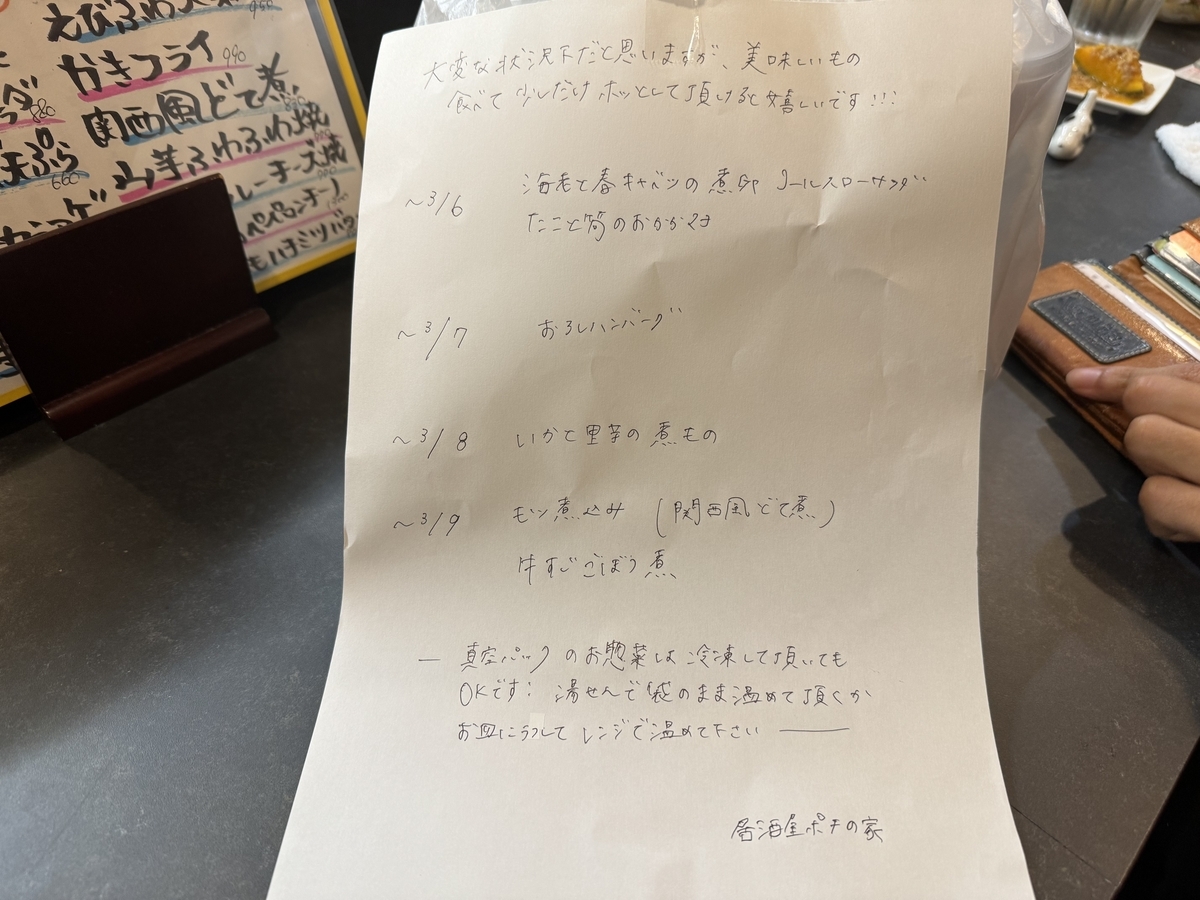 えびふわ
かきフライ 990
関西風どて煮
山芋ふわふわ焼
チーズ焼
ペペロンチーノ
880
天ぷら
660
大変な状況下だと思いますが、美味しいもの
食べて 少しだけ ホッとして頂けると嬉しいです!!!
~3/6 海老と春キャベツの煮卵 コールスローサラダ
たこと筍のおかか和え
~3/7 おろしハンバーグ
~3/8 いかと里芋の煮もの
~3/9 モツ煮込み (関西風どて煮)
牛すじごぼう煮
― 真空パックのお惣菜は冷凍して頂いても
OKです! 湯せんで袋のまま温めて頂くか
お皿にうつして レンジで温めて下さい ―
居酒屋ポチの家